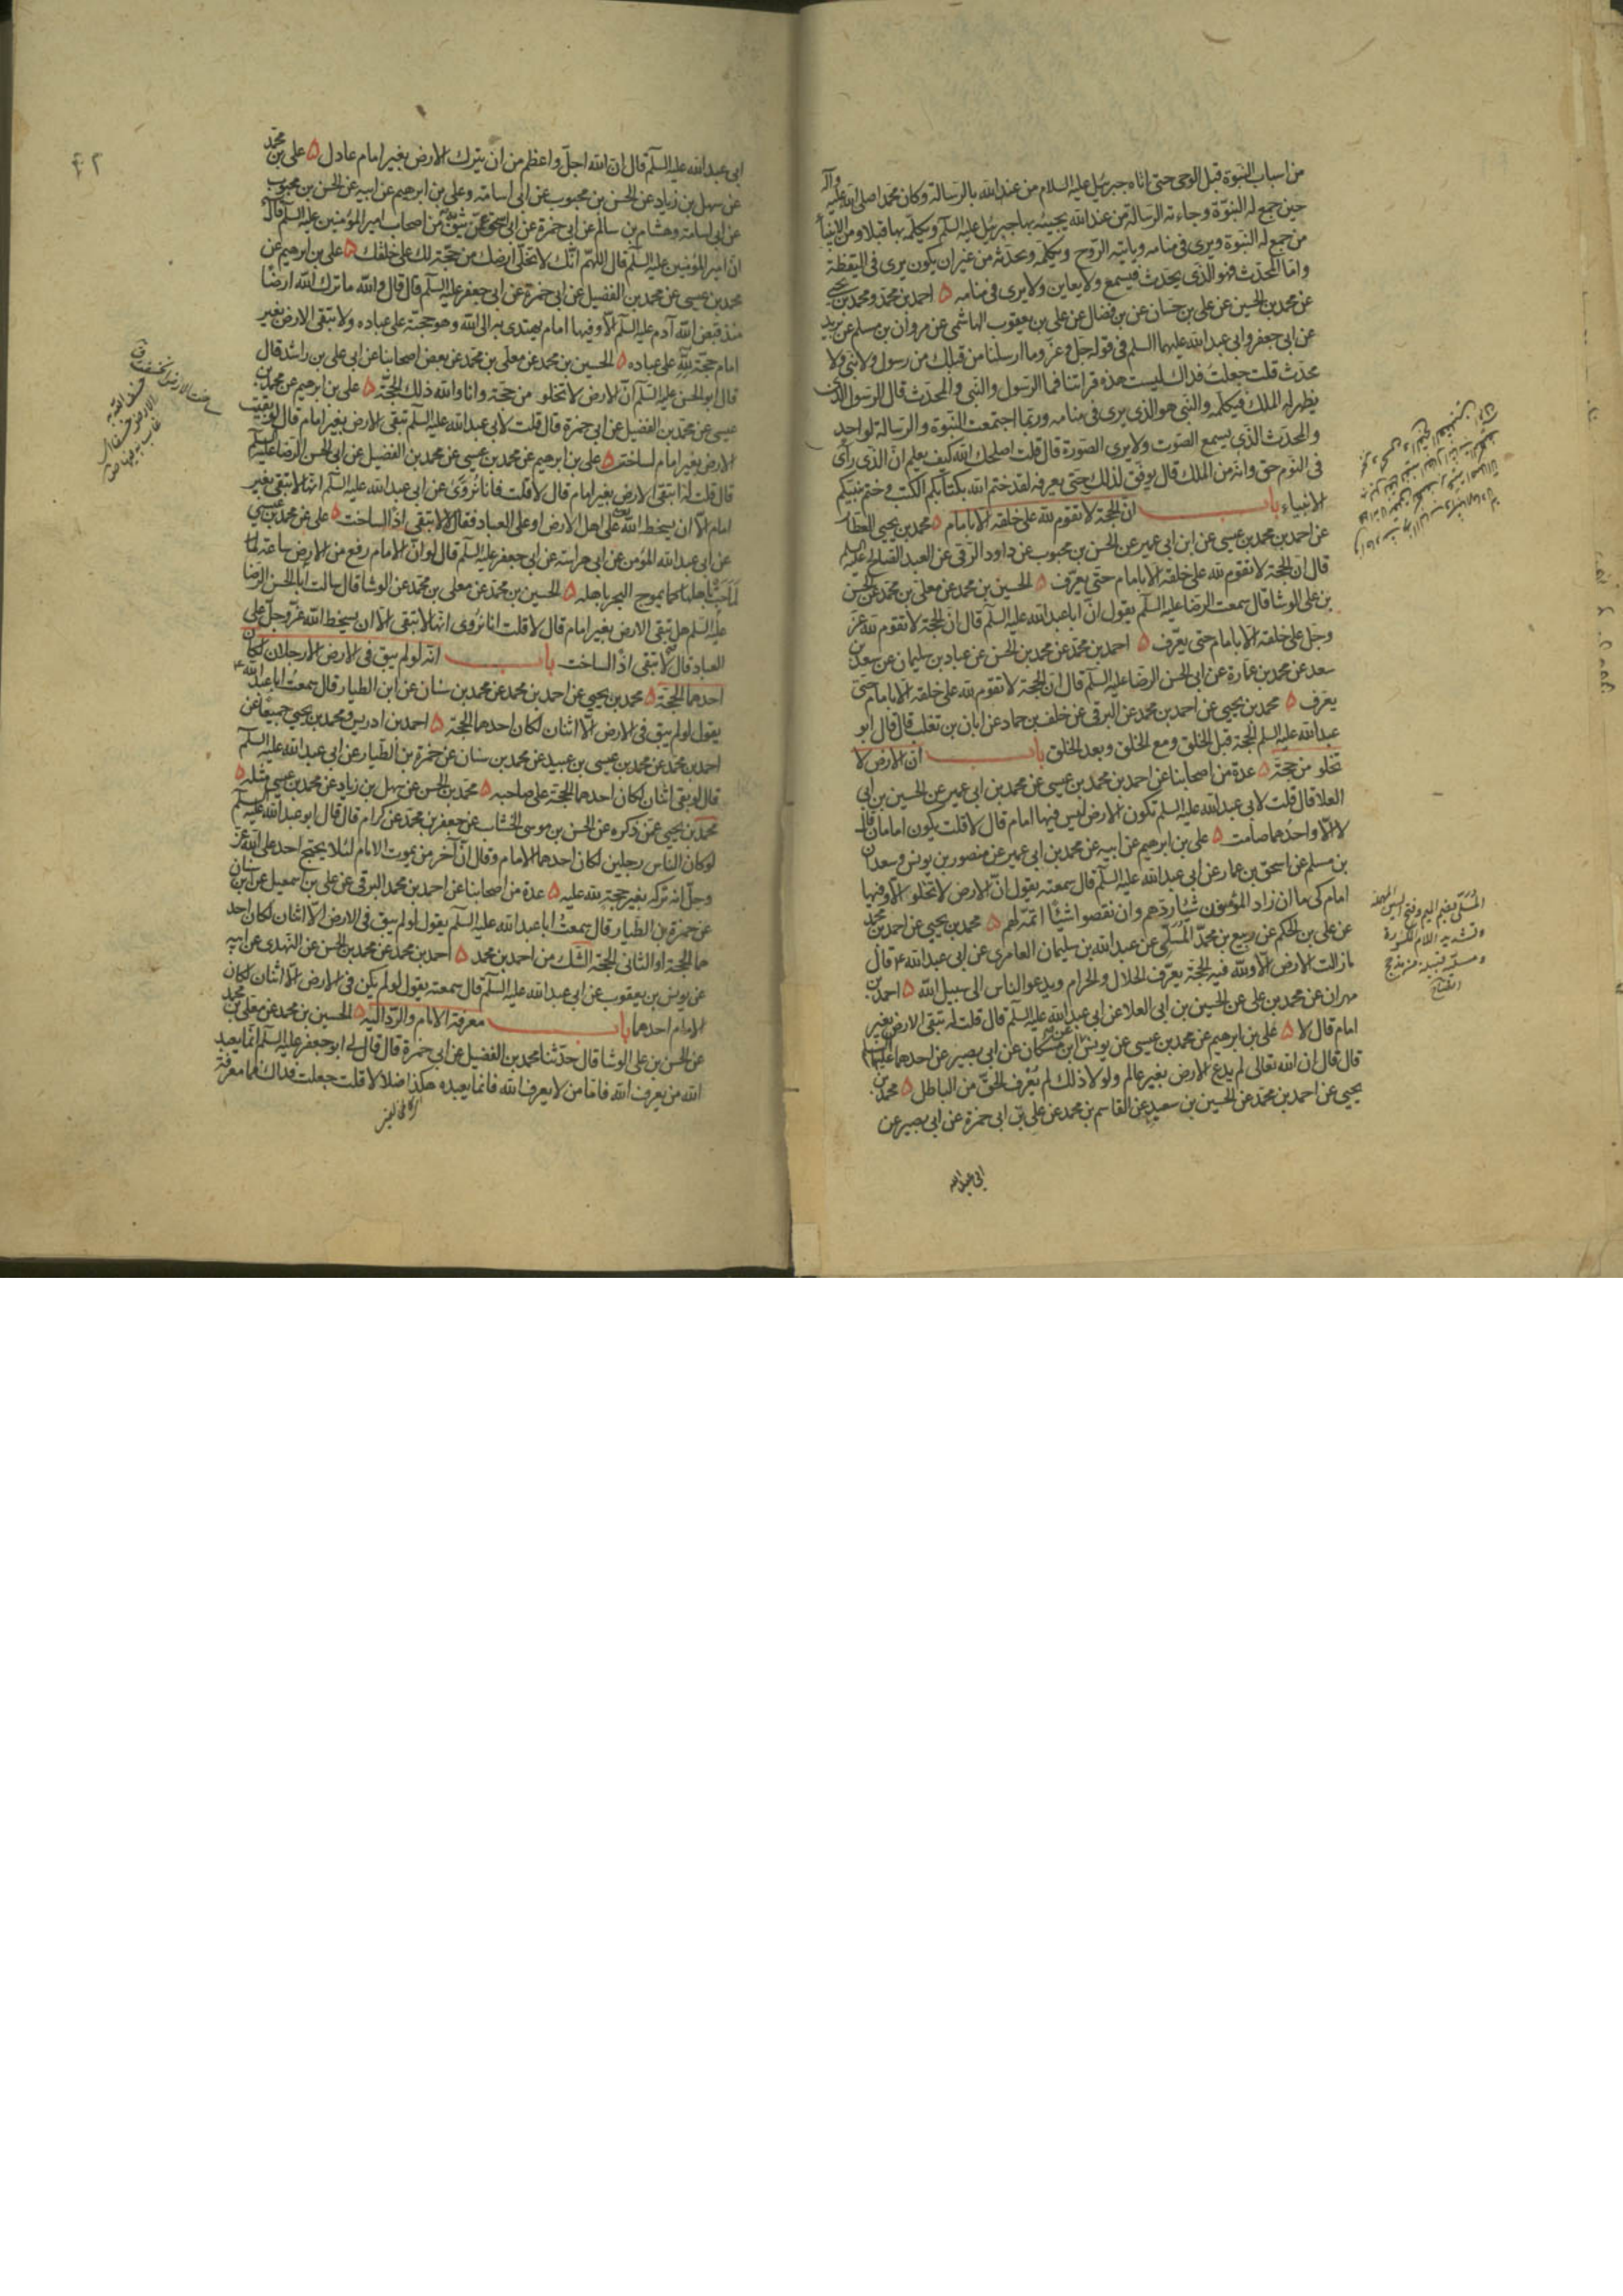 من اسباب النبوة قبل الوحى حتى اتاه جبرئيل عليه السلام من عند الله بالرسالة وكان محمد صلى الله عليه وآله
حين جمع له النبوة وجاءته الرسالة من عند الله يجيئه بها جبرئيل عليه السلم ويكلمه بها قبلا ومن الانبياء
من جمع له النبوة ويرى فى منامه وياتيه الروح ويكلمه ويحدثه من غير ان يكون يرى فى اليقظة
واما المحدث فهو الذى يحدث فيسمع ولا يعاين ولا يرى فى منامه ه احمد بن محمد ومحمد بن يحيى
عن محمد بن الحسين عن على بن حسان عن بن فضال عن على بن يعقوب الهاشمى عن مروان بن مسلم عن بريد
عن ابى جعفر وابى عبد الله عليهما السلم فى قوله جل وعز وما ارسلنا من قبلك من رسول ولا نبى ولا
محدث قلت جعلت فداك ليست هذه قراتنا فما الرسول والنبى والمحدث قال الرسول الذى
يظهر له الملك فيكلمه والنبى هو الذى يرى فى منامه وربما اجتمعت النبوة والرسالة لواحد
والمحدث الذى يسمع الصوت ولا يرى الصورة قال قلت اصلحك الله كيف يعلم ان الذى راى
فى النوم حق وانه من الملك قال يوفق لذلك حتى يعرفه لقد ختم الله بكتابكم الكتب وختم نبيكم
الانبياء باب ان الحجة لا تقوم لله على خلقه الا بامام ه محمد بن يحيى العطار
عن احمد بن محمد بن عيسى عن ابن ابى عمير عن الحسن بن محبوب عن داود الرقى عن العبد الصالح عليه السلم
قال ان الحجة لا تقوم لله على خلقه الا بامام حتى يعرف ه الحسين بن محمد عن معلى بن محمد عن الحسن
بن على الوشا قال سمعت الرضا عليه السلم يقول ان ابا عبد الله عليه السلم قال ان الحجة لا تقوم لله عز
وجل على خلقه الا بامام حتى يعرف ه احمد بن محمد عن محمد بن الحسن عن عباد بن سليمان عن سعد بن
سعد عن محمد بن عمارة عن ابى الحسن الرضا عليه السلم قال ان الحجة لا تقوم لله على خلقه الا بامام حتى
يعرف ه محمد بن يحيى عن احمد بن محمد عن البرقى عن خلف بن حماد عن ابان بن تغلب قال قال ابو
عبد الله عليه السلم الحجة قبل الخلق ومع الخلق وبعد الخلق باب ان الارض لا
تخلو من حجة ه عدة من اصحابنا عن احمد بن محمد بن عيسى عن محمد بن ابى عمير عن الحسين بن ابى
العلا قال قلت لابى عبد الله عليه السلم تكون الارض ليس فيها امام قال لا قلت يكون امامان قال
لا الا واحدهما صامت ه على بن ابرهيم عن ابيه عن محمد بن ابى عمير عن منصور بن يونس وسعدان
بن مسلم عن اسحق بن عمار عن ابى عبد الله عليه السلم قال سمعته يقول ان الارض لا تخلو الا وفيها
امام كى ما ان زاد المؤمنون شيئا ردهم وان نقصوا شيئا اتمه لهم ه محمد بن يحيى عن احمد بن محمد
عن على بن الحكم عن ربيع بن محمد المسلى عن عبد الله بن سليمان العامرى عن ابى عبد الله ع قال
ما زالت الارض الا ولله فيه الحجة يعرف الحلال والحرام ويدعو الناس الى سبيل الله ه احمد بن
مهران عن محمد بن على عن الحسين بن ابى العلا عن ابى عبد الله عليه السلم قال قلت له تبقى الارض بغير
امام قال لا ه على بن ابرهيم عن محمد بن عيسى عن يونس عن ابن مسكان عن ابى بصير عن احدهما عليهما السلم
قال قال ان الله تعالى لم يدع الارض بغير عالم ولولا ذلك لم يعرف الحق من الباطل ه محمد بن
يحيى عن احمد بن محمد عن الحسين بن سعيد عن القاسم بن محمد عن على بن ابى حمزة عن ابى بصير عن
ابى عبد الله
المسلى بضم الميم وفتح السين المهملة
وتشديد اللام المكسورة
ومسلية قبيلة من مذحج
٤٢
ابى عبد الله عليه السلم قال ان الله اجل واعظم من ان يترك الارض بغير امام عادل ه على بن محمد
عن سهل بن زياد عن الحسن بن محبوب عن ابى اسامة وعلى بن ابرهيم عن ابيه عن الحسن بن محبوب
عن ابى اسامة وهشام بن سالم عن ابى حمزة عن ابى اسحق عمن يثق به من اصحاب امير المؤمنين عليه السلم قال
ان امير المؤمنين عليه السلم قال اللهم انك لا تخلى ارضك من حجة لك على خلقك ه على بن ابرهيم عن
محمد بن عيسى عن محمد بن الفضيل عن ابى حمزة عن ابى جعفر عليه السلم قال قال والله ما ترك الله ارضا
منذ قبض الله آدم عليه السلم الا وفيها امام يهتدى به الى الله وهو حجة على عباده ولا تبقى الارض بغير
امام حجة لله على عباده ه الحسين بن محمد عن معلى بن محمد عن بعض اصحابنا عن ابى على بن راشد قال
قال ابو الحسن عليه السلم ان الارض لا تخلو من حجة وانا والله ذلك الحجة ه على بن ابرهيم عن محمد بن
عيسى عن محمد بن الفضيل عن ابى حمزة قال قلت لابى عبد الله عليه السلم تبقى الارض بغير امام قال لو بقيت
الارض بغير امام لساخت ه على بن ابرهيم عن محمد بن عيسى عن محمد بن الفضيل عن ابى الحسن الرضا عليه السلم
قال قلت له اتبقى الارض بغير امام قال لا قلت فانا نروى عن ابى عبد الله عليه السلم انها لا تبقى بغير
امام الا ان يسخط الله على اهل الارض او على العباد فقال لا لا تبقى اذا لساخت ه على عن محمد بن عيسى
عن ابى عبد الله المؤمن عن ابى هراسة عن ابى جعفر عليه السلم قال لو ان الامام رفع من الارض ساعة لما
لماجت باهلها كما يموج البحر باهله ه الحسين بن محمد عن معلى بن محمد عن الوشا قال سالت ابا الحسن الرضا
عليه السلم هل تبقى الارض بغير امام قال لا قلت انا نروى انها لا تبقى الا ان يسخط الله عز وجل على
العباد قال لا تبقى اذا لساخت باب انه لو لم يبق فى الارض الا رجلان لكان
احدهما الحجة ه محمد بن يحيى عن احمد بن محمد عن محمد بن سنان عن ابن الطيار قال سمعت ابا عبد الله ع
يقول لو لم يبق فى الارض الا اثنان لكان احدهما الحجة ه احمد بن ادريس ومحمد بن يحيى جميعا عن
احمد بن محمد عن محمد بن عيسى بن عبيد عن محمد بن سنان عن حمزة بن الطيار عن ابى عبد الله عليه السلم
قال لو بقى اثنان لكان احدهما الحجة على صاحبه ه محمد بن الحسن عن سهل بن زياد عن محمد بن عيسى مثله ه
محمد بن يحيى عمن ذكره عن الحسن بن موسى الخشاب عن جعفر بن محمد عن كرام قال قال ابو عبد الله عليه السلم
لو كان الناس رجلين لكان احدهما الامام وقال ان آخر من يموت الامام لئلا يحتج احد على الله عز
وجل انه تركه بغير حجة لله عليه ه عدة من اصحابنا عن احمد بن محمد البرقى عن على بن اسمعيل عن ابن سنان
عن حمزة بن الطيار قال سمعت ابا عبد الله عليه السلم يقول لو لم يبق فى الارض الا اثنان لكان احد
هما الحجة او الثانى الحجة الشك من احمد بن محمد ه احمد بن محمد عن محمد بن الحسن عن النهدى عن ابيه
عن يونس بن يعقوب عن ابى عبد الله عليه السلم قال سمعته يقول لو لم يكن فى الارض الا اثنان لكان
الامام احدهما باب معرفة الامام والرد اليه ه الحسين بن محمد عن معلى بن محمد
عن الحسن بن على الوشا قال حدثنا محمد بن الفضيل عن ابى حمزة قال قال لى ابو جعفر عليه السلم انما يعبد
الله من يعرف الله فاما من لا يعرف الله فانما يعبده هكذا ضلالا قلت جعلت فداك فما معرفة